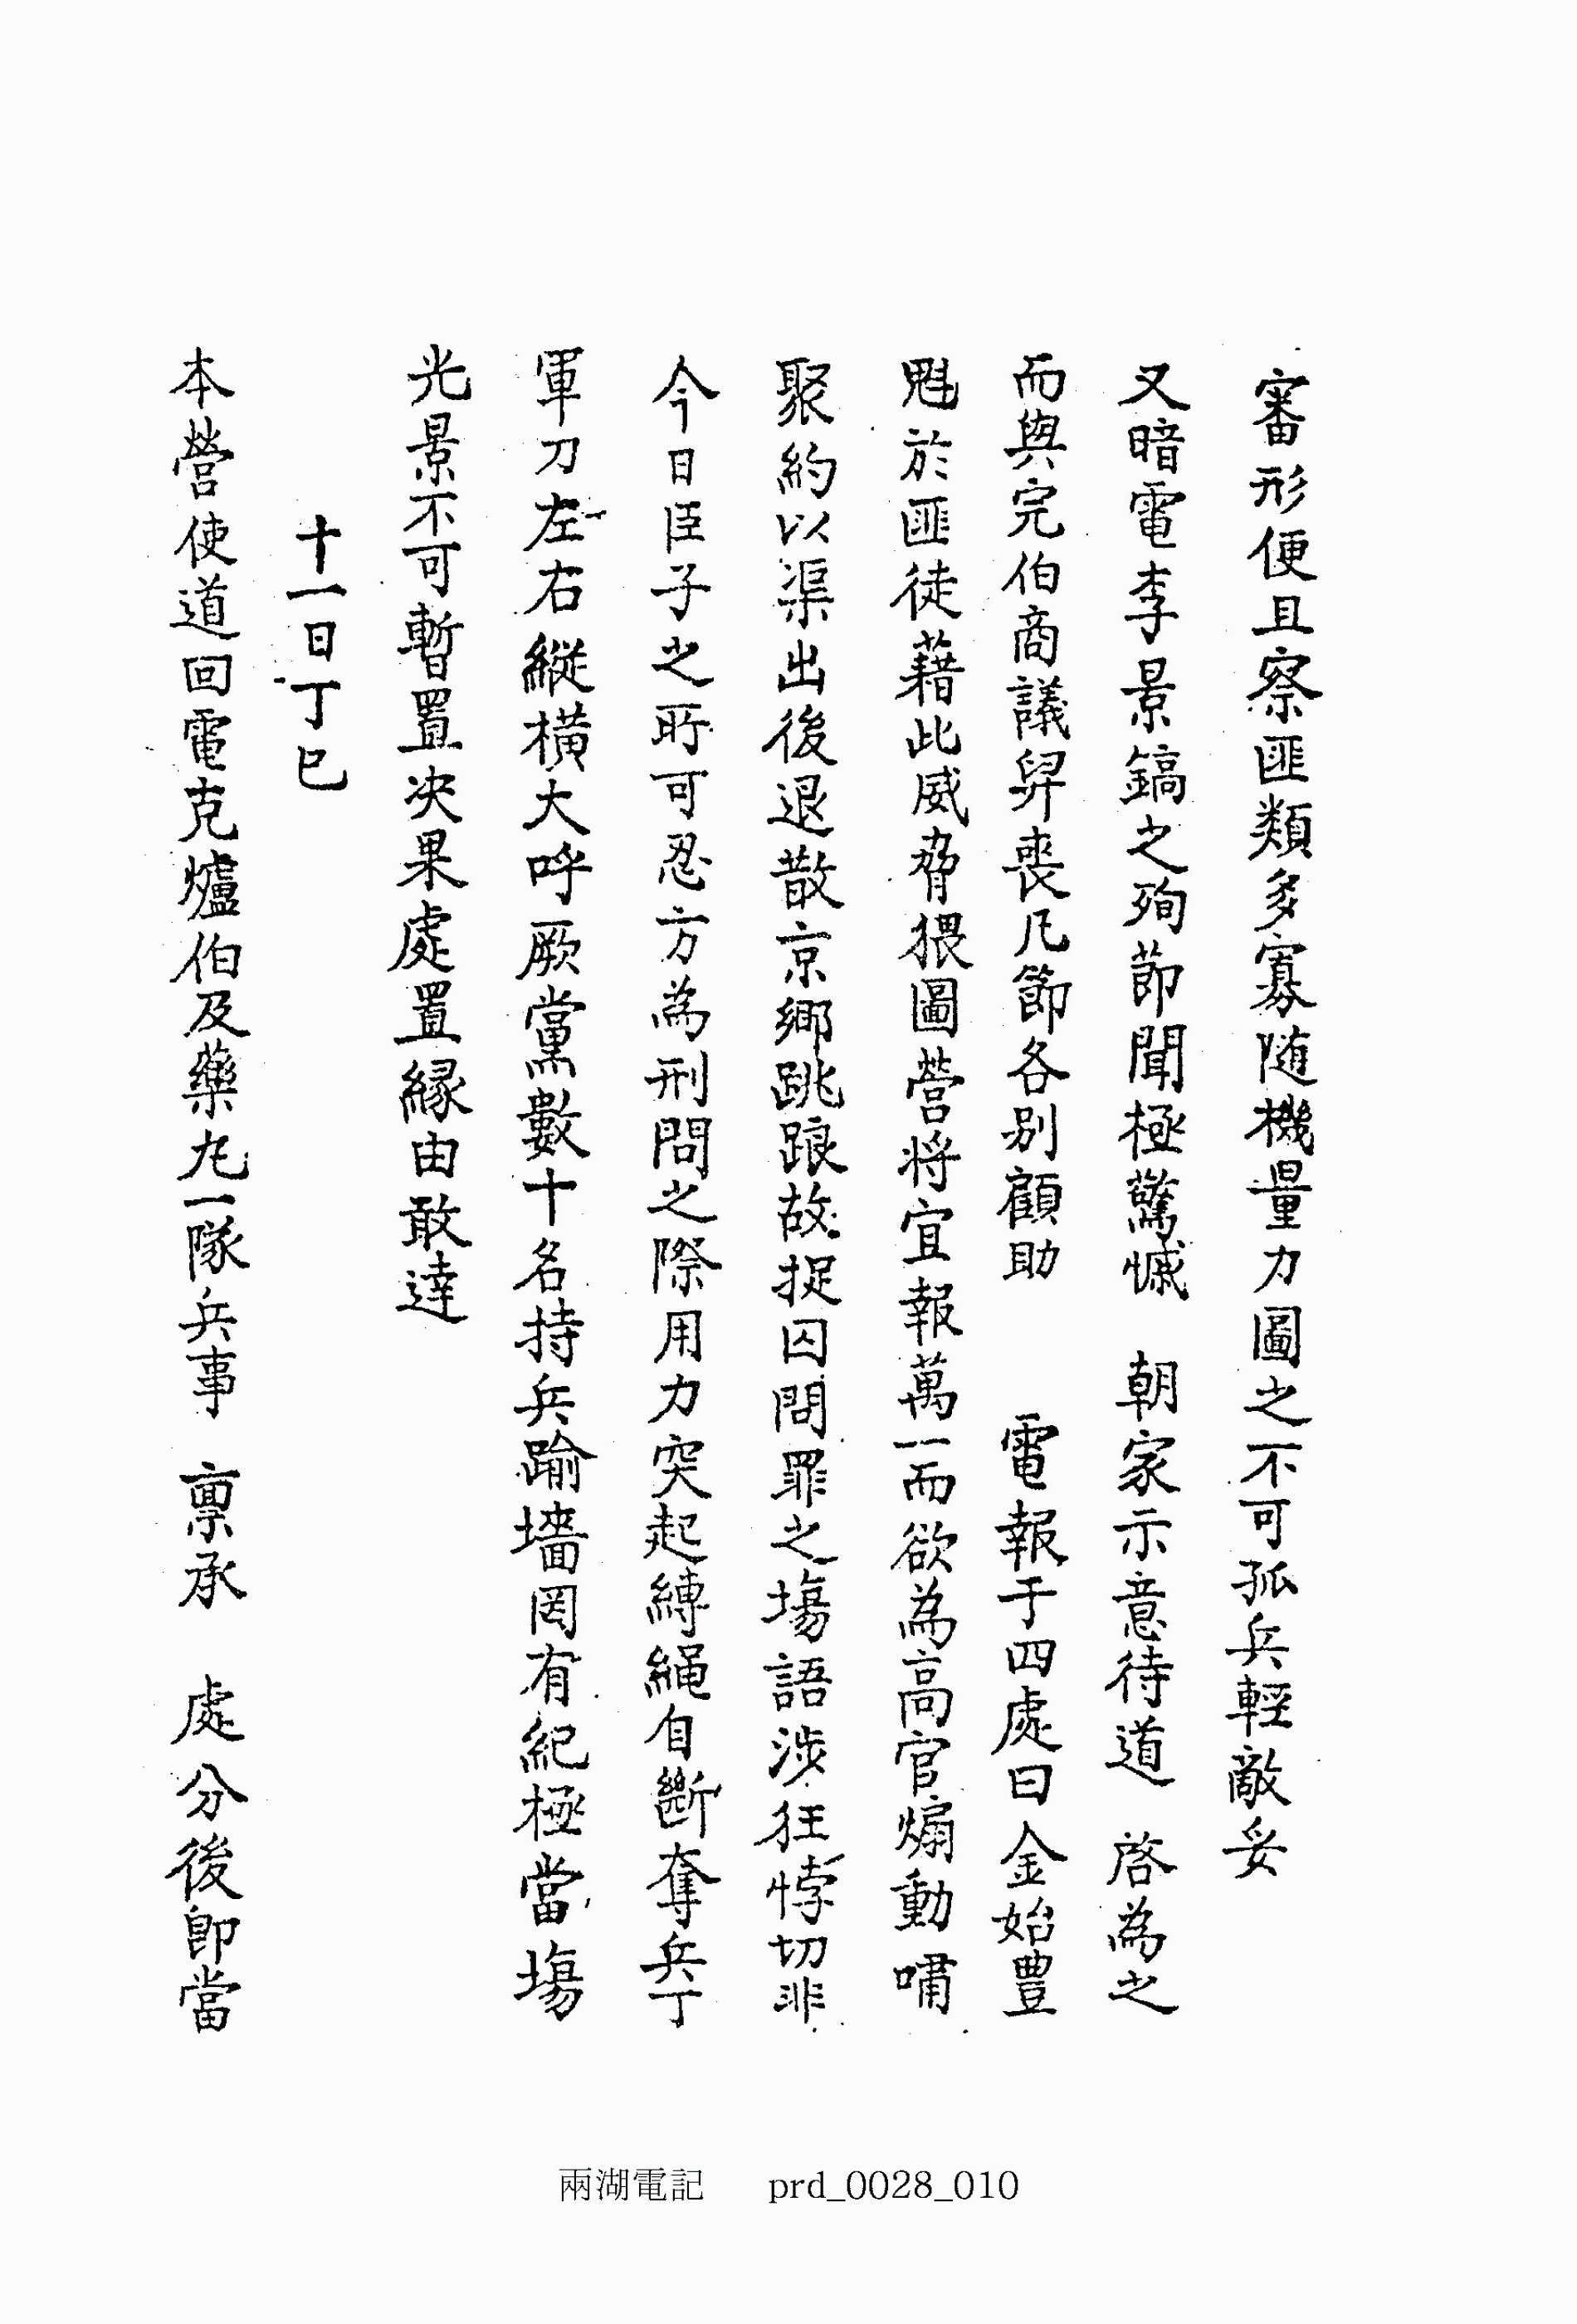 審形便且察匪類多寡随機量力圖之不可孤兵輕敵妥
又暗電李景鎬之殉節聞極驚慽 朝家示意待道 啓為之
而與完伯商議舁喪凡節各別顧助 電報于四處曰金始豊
魁於匪徒藉此威脅猥圖營將宜報萬一而欲為高官煽動嘯
聚約以渠出後退散京鄉跳踉故捉囚問罪之塲語涉狂悖切非
今日臣子之所可忍方為刑問之際用力突起縛繩自斷奪兵丁
軍刀左右縱橫大呼厥黨數十名持兵踰墻罔有紀極當塲
光景不可暫置决果處置緣由敢達
十一日丁巳
本營使道回電克爐伯及藥丸一隊兵事 稟承 處分後卽當
兩湖電記 prd_0028_010